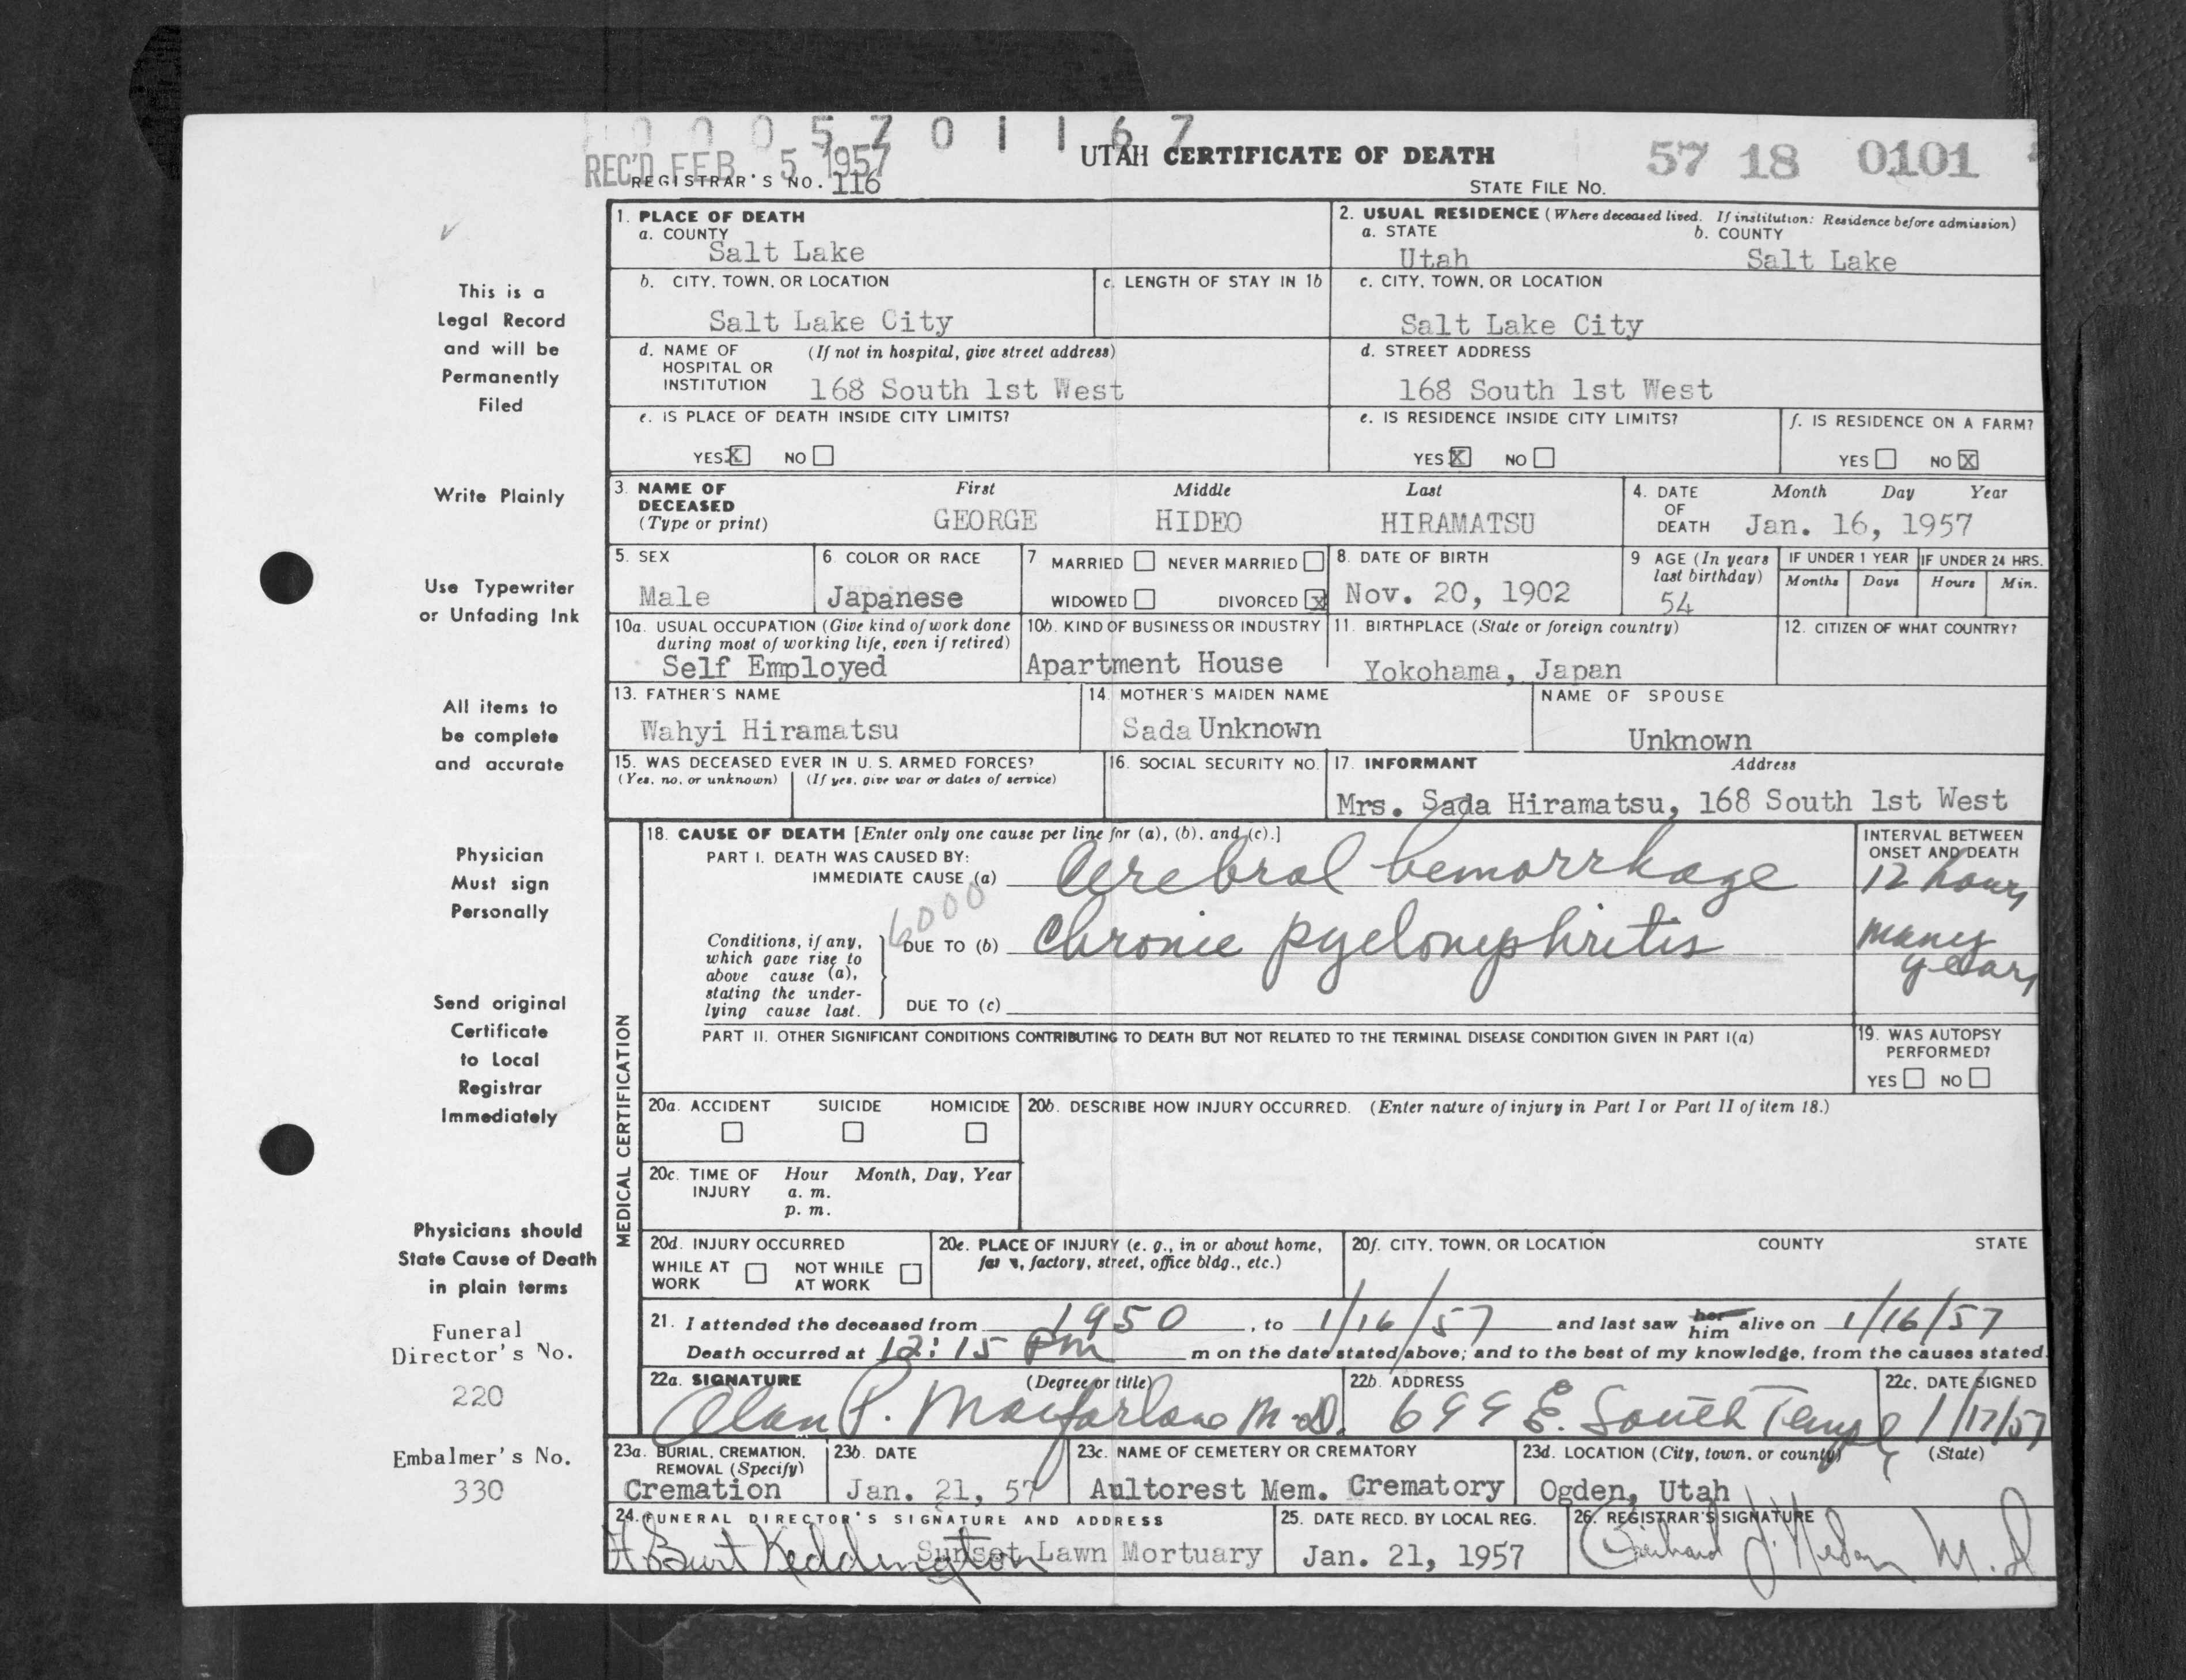 0 0 0 5 7 0 1 1 6 7
REC'D FEB 5 1957
REGISTRAR'S NO. 116
UTAH CERTIFICATE OF DEATH
57 18 0101
STATE FILE NO.
This is a
Legal Record
and will be
Permanently
Filed
Write Plainly
Use Typewriter
or Unfading Ink
All items to
be complete
and accurate
Physician
Must sign
Personally
Send original
Certificate
to Local
Registrar
Immediately
Physicians should
State Cause of Death
in plain terms
Funeral
Director's No.
220
Embalmer's No.
330
1. PLACE OF DEATH
a. COUNTY
Salt Lake
2. USUAL RESIDENCE (Where deceased lived. If institution: Residence before admission)
a. STATE b. COUNTY
Utah Salt Lake
b. CITY, TOWN, OR LOCATION
Salt Lake City
c. LENGTH OF STAY IN 1b
c. CITY, TOWN, OR LOCATION
Salt Lake City
d. NAME OF (If not in hospital, give street address)
HOSPITAL OR
INSTITUTION 168 South 1st West
d. STREET ADDRESS
168 South 1st West
e. IS PLACE OF DEATH INSIDE CITY LIMITS?
YES X NO
e. IS RESIDENCE INSIDE CITY LIMITS?
YES X NO
f. IS RESIDENCE ON A FARM?
YES NO X
3. NAME OF First Middle Last
DECEASED
(Type or print) GEORGE HIDEO HIRAMATSU
4. DATE Month Day Year
OF
DEATH Jan. 16, 1957
5. SEX
Male
6 COLOR OR RACE
Japanese
7 MARRIED NEVER MARRIED
WIDOWED DIVORCED X
8. DATE OF BIRTH
Nov. 20, 1902
9 AGE (In years
last birthday)
54
IF UNDER 1 YEAR IF UNDER 24 HRS.
Months Days Hours Min.
10a. USUAL OCCUPATION (Give kind of work done
during most of working life, even if retired)
Self Employed
10b. KIND OF BUSINESS OR INDUSTRY
Apartment House
11. BIRTHPLACE (State or foreign country)
Yokohama, Japan
12. CITIZEN OF WHAT COUNTRY?
13. FATHER'S NAME
Wahyi Hiramatsu
14. MOTHER'S MAIDEN NAME
Sada Unknown
NAME OF SPOUSE
Unknown
15. WAS DECEASED EVER IN U. S. ARMED FORCES?
(Yes, no, or unknown) (If yes, give war or dates of service)
16. SOCIAL SECURITY NO.
17. INFORMANT Address
Mrs. Sada Hiramatsu, 168 South 1st West
MEDICAL CERTIFICATION
18. CAUSE OF DEATH [Enter only one cause per line for (a), (b), and (c).]
PART I. DEATH WAS CAUSED BY:
IMMEDIATE CAUSE (a) Cerebral hemorrhage
INTERVAL BETWEEN
ONSET AND DEATH
12 hours
6000
Conditions, if any,
which gave rise to
above cause (a),
stating the under-
lying cause last.
DUE TO (b) Chronic pyelonephritis
many
years
DUE TO (c)
PART II. OTHER SIGNIFICANT CONDITIONS CONTRIBUTING TO DEATH BUT NOT RELATED TO THE TERMINAL DISEASE CONDITION GIVEN IN PART I(a)
19. WAS AUTOPSY
PERFORMED?
YES NO
20a. ACCIDENT SUICIDE HOMICIDE
20b. DESCRIBE HOW INJURY OCCURRED. (Enter nature of injury in Part I or Part II of item 18.)
20c. TIME OF Hour Month, Day, Year
INJURY a. m.
p. m.
20d. INJURY OCCURRED
WHILE AT NOT WHILE
WORK AT WORK
20e. PLACE OF INJURY (e. g., in or about home,
farm, factory, street, office bldg., etc.)
20f. CITY, TOWN, OR LOCATION COUNTY STATE
21. I attended the deceased from 1950, to 1/16/57 and last saw her him alive on 1/16/57
Death occurred at 12:15 Pm m on the date stated above; and to the best of my knowledge, from the causes stated.
22a. SIGNATURE (Degree or title)
Alan P. Macfarlane M.D.
22b. ADDRESS
699 E. South Temple
22c. DATE SIGNED
1/17/57
23a. BURIAL, CREMATION,
REMOVAL (Specify)
Cremation
23b. DATE
Jan. 21, 57
23c. NAME OF CEMETERY OR CREMATORY
Aultorest Mem. Crematory
23d. LOCATION (City, town, or county) (State)
Ogden, Utah
24. FUNERAL DIRECTOR'S SIGNATURE AND ADDRESS
Burt Keddington Sunset Lawn Mortuary
25. DATE RECD. BY LOCAL REG.
Jan. 21, 1957
26. REGISTRAR'S SIGNATURE
M.D.